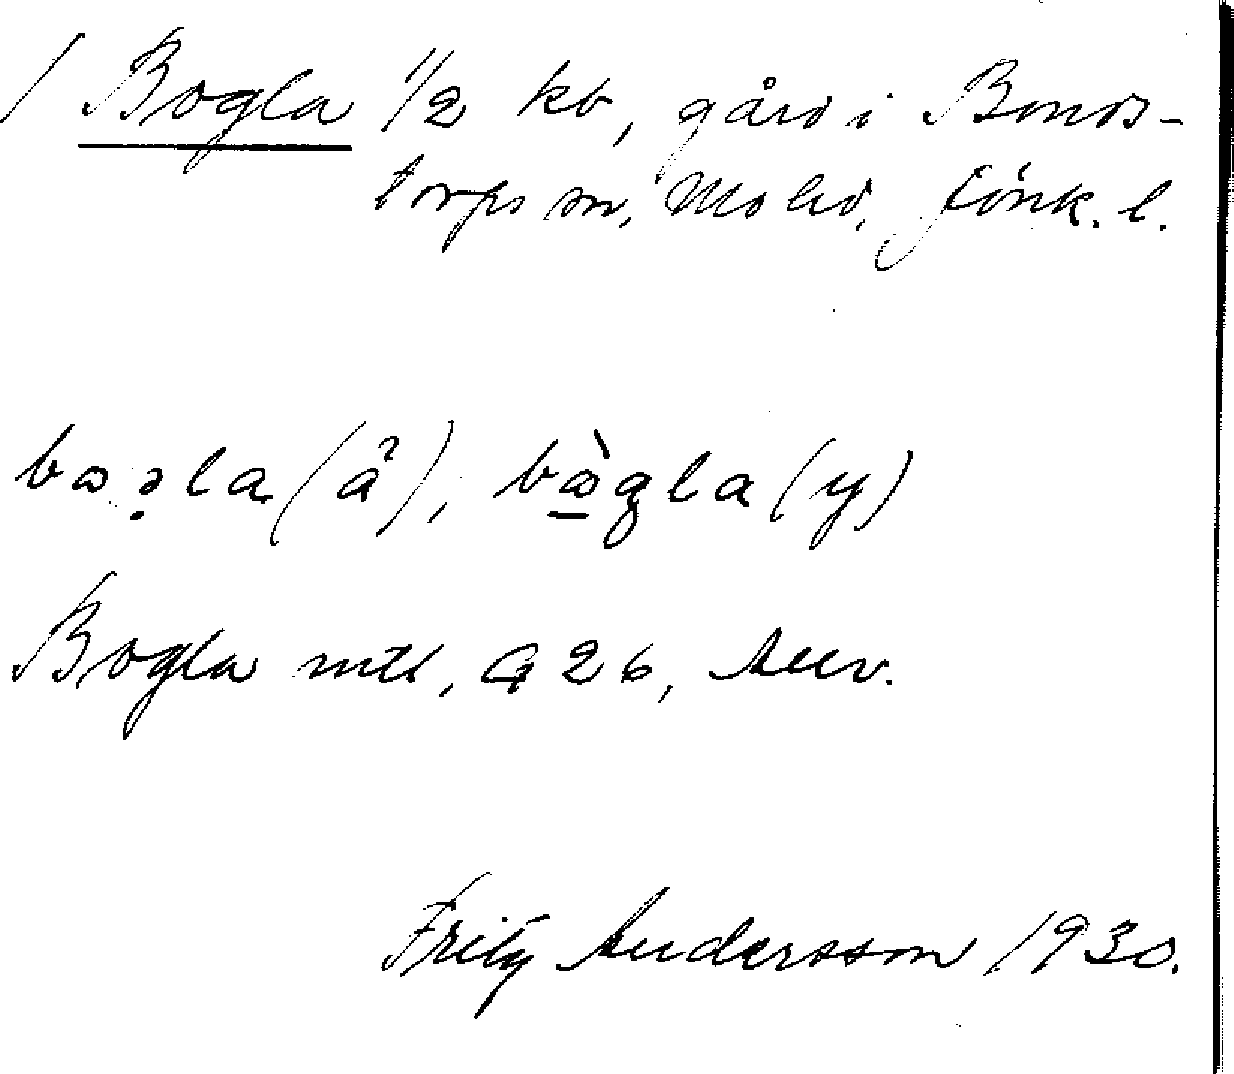 / Bogla 1/2 kb, gård i Bonds-
torps sn, Mo hd, Jönk. l.
bωə̣la (ä²), bὼ̱gla (y)
Bogla mtl, G 26, Aeiv.
Fritz Andersson 1930.